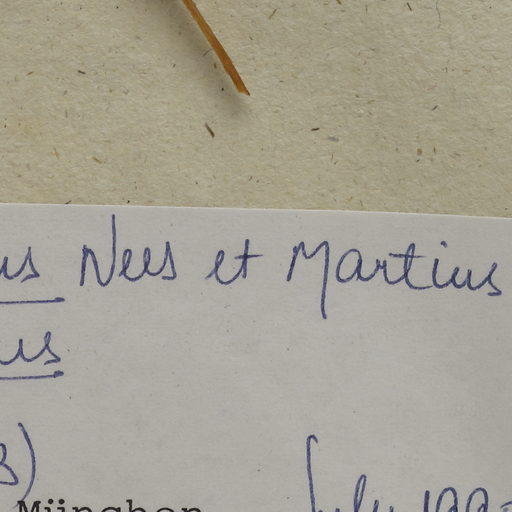 us Nees et Martius
us
)
München July 199